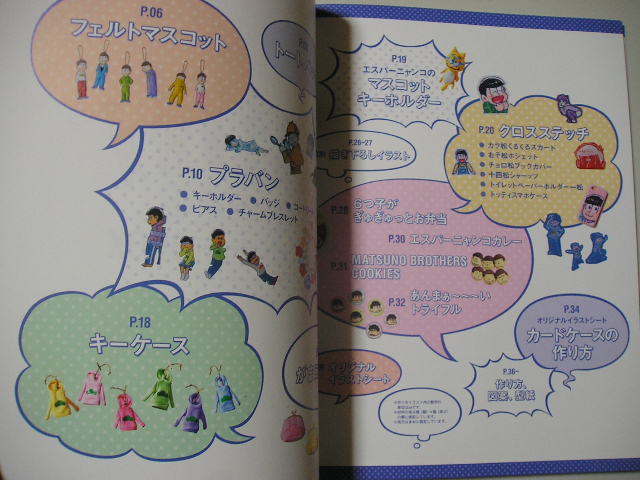 P.06
フェルトマスコット
P.10 プラバン
● キーホルダー ● バッジ
● ピアス ● チャームブレスレット
P.18
キーケース
オリジナル
イラストシート
P.19
エスパーニャンコの
マスコット
キーホルダー
P.26-27
描き下ろしイラスト
P.20 クロスステッチ
● カラ松くるくるスカート
● おそ松ポシェット
● チョロ松ブックカバー
● 十四松シャーッツ
● トイレットペーパーホルダー一松
● トッティスマホケース
６つ子が
ぎゅぎゅっとお弁当
P.30 エスパーニャンコカレー
P.31 MATSUNO BROTHERS
COOKIES
P.32 あんまぁ〜〜〜い
トライフル
P.34
オリジナルイラストシート
カードケースの
作り方
P.36~
作り方、
図案、型紙